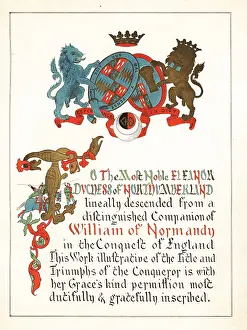 To The Most Noble ELEANOR
DUCHESS of NORTHUMBERLAND
lineally descended from a
distinguished Companion of
William of Normandy
in the Conquest of England
This Work illustrative of the and
Triumphs of the Conqueror is with
her Grace's kind permission most
dutifully & gratefully inscribed.